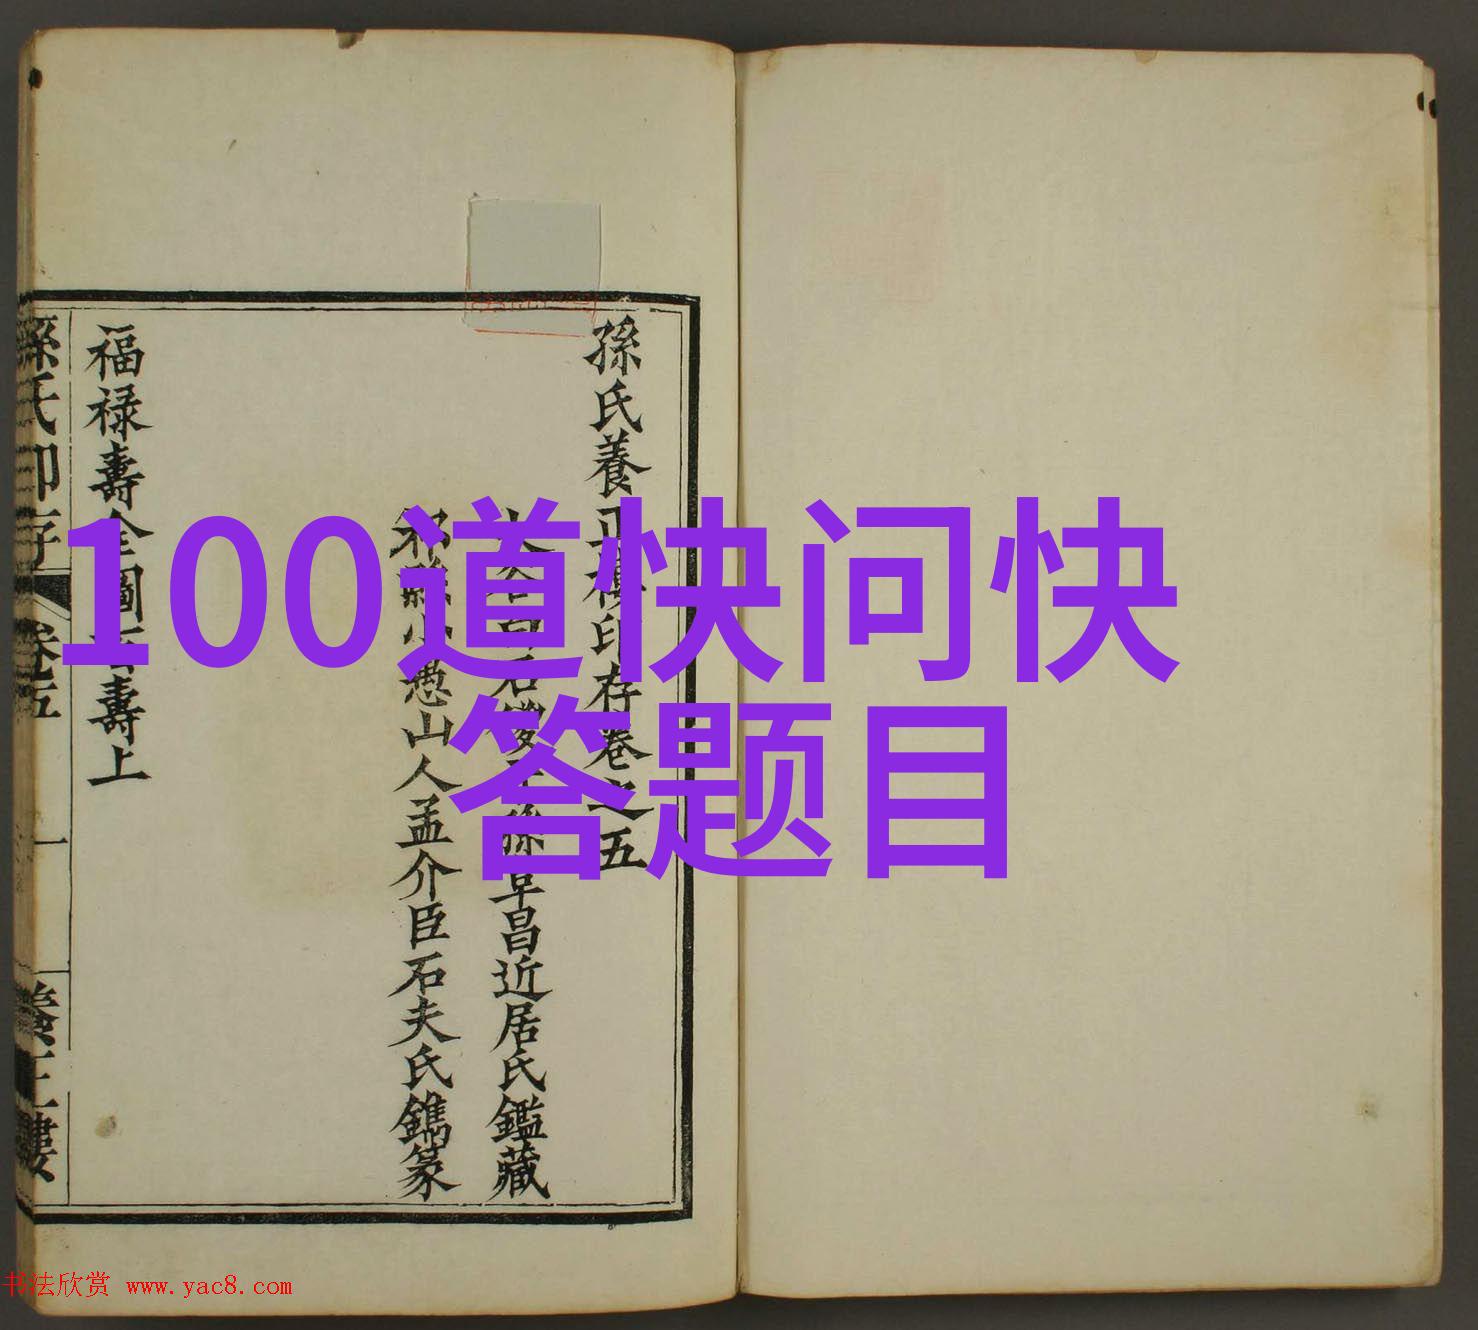 100道快问快
答题目
孫氏養正樓印存卷之五
孫阜昌近居氏鑑藏
山人孟介臣石夫氏鐫篆
福禄壽全圖百壽上
孫氏印存
卷五
一
養正樓
书法欣赏 www.yac8.com